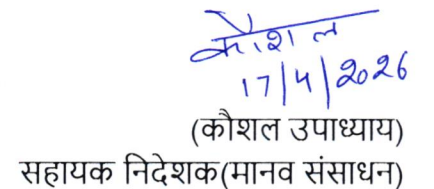 कौशल
17/4/2026
(कौशल उपाध्याय)
सहायक निदेशक(मानव संसाधन)